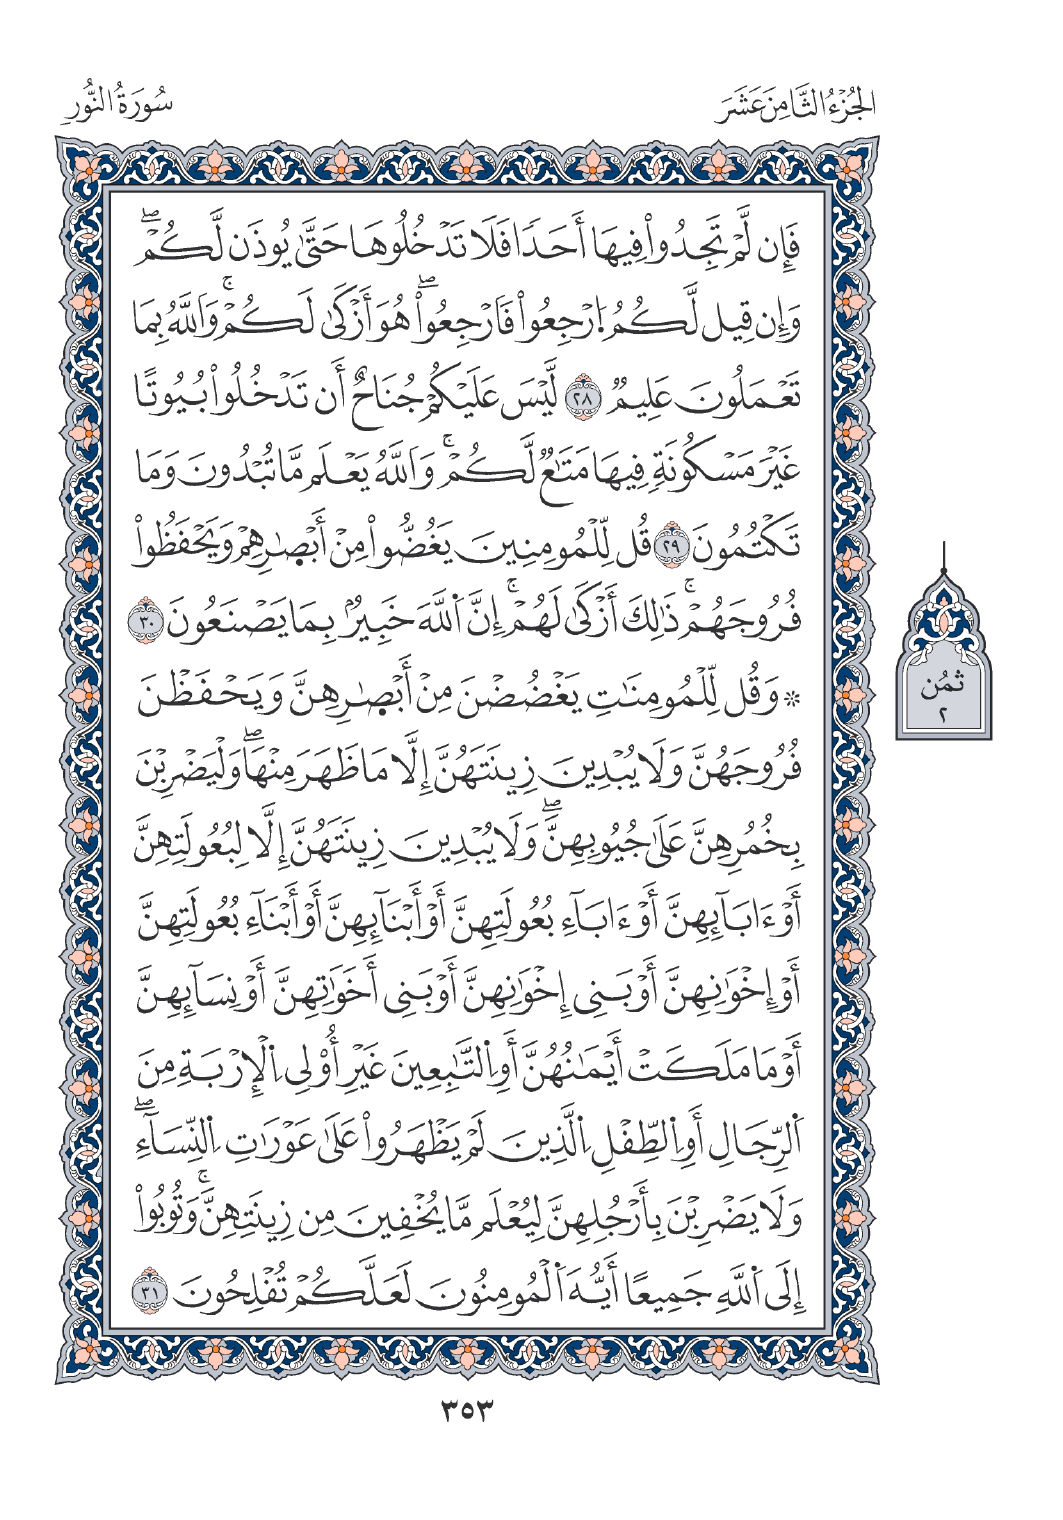 الجُزْءُ الثَّامِنَ عَشَرَ
سُورَةُ النُّورِ
فَإِن لَّمْ تَجِدُواْ فِيهَا أَحَدًا فَلَا تَدْخُلُوهَا حَتَّىٰ يُوذَن لَّكُمْۖ
وَإِن قِيلَ لَّكُمُ ارْجِعُواْ فَارْجِعُواْۖ هُوَ أَزْكَىٰ لَكُمْۚ وَاللَّهُ بِمَا
تَعْمَلُونَ عَلِيمٌ ٢٨ لَّيْسَ عَلَيْكُمْ جُنَاحٌ أَن تَدْخُلُواْ بُيُوتًا
غَيْرَ مَسْكُونَةٍ فِيهَا مَتَاعٌ لَّكُمْۚ وَاللَّهُ يَعْلَم مَّا تُبْدُونَ وَمَا
تَكْتُمُونَ ٢٩ قُل لِّلْمُومِنِينَ يَغُضُّواْ مِنْ أَبْصَٰرِهِمْ وَيَحْفَظُواْ
فُرُوجَهُمْۚ ذَٰلِكَ أَزْكَىٰ لَهُمْۚ إِنَّ اللَّهَ خَبِيرٌ بِمَا يَصْنَعُونَ ٣٠
۞ وَقُل لِّلْمُومِنَٰتِ يَغْضُضْنَ مِنْ أَبْصَٰرِهِنَّ وَيَحْفَظْنَ
فُرُوجَهُنَّ وَلَا يُبْدِينَ زِينَتَهُنَّ إِلَّا مَا ظَهَرَ مِنْهَاۖ وَلْيَضْرِبْنَ
بِخُمُرِهِنَّ عَلَىٰ جُيُوبِهِنَّۖ وَلَا يُبْدِينَ زِينَتَهُنَّ إِلَّا لِبُعُولَتِهِنَّ
أَوْ ءَابَآئِهِنَّ أَوْ ءَابَآءِ بُعُولَتِهِنَّ أَوْ أَبْنَآئِهِنَّ أَوْ أَبْنَآءِ بُعُولَتِهِنَّ
أَوْ إِخْوَٰنِهِنَّ أَوْ بَنِي إِخْوَٰنِهِنَّ أَوْ بَنِي أَخَوَٰتِهِنَّ أَوْ نِسَآئِهِنَّ
أَوْ مَا مَلَكَتْ أَيْمَٰنُهُنَّ أَوِ التَّٰبِعِينَ غَيْرِ أُوْلِي الْإِرْبَةِ مِنَ
الرِّجَالِ أَوِ الطِّفْلِ الَّذِينَ لَمْ يَظْهَرُواْ عَلَىٰ عَوْرَٰتِ النِّسَآءِۖ
وَلَا يَضْرِبْنَ بِأَرْجُلِهِنَّ لِيُعْلَم مَّا يُخْفِينَ مِن زِينَتِهِنَّۚ وَتُوبُواْ
إِلَى اللَّهِ جَمِيعًا أَيُّهَ الْمُومِنُونَ لَعَلَّكُمْ تُفْلِحُونَ ٣١
ثُمُن
٢
٣٥٣